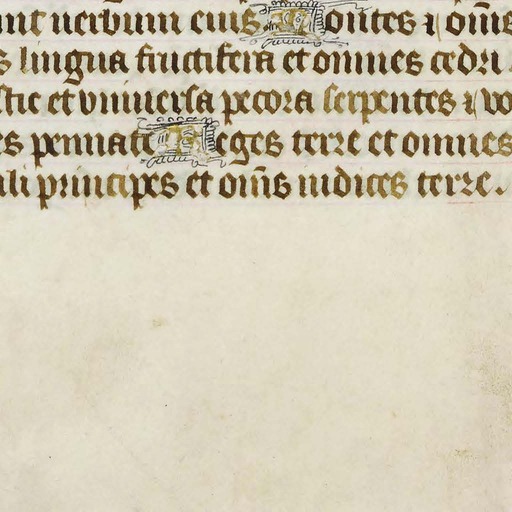 unt uerbum eius Montes ⁊ om̄s
s lingua fructifera et omnes cedri
stie et vniuersa pecora serpentes ⁊ vo
es pennate Reges terre et omnes
uli principes et om̄s iudices terre.